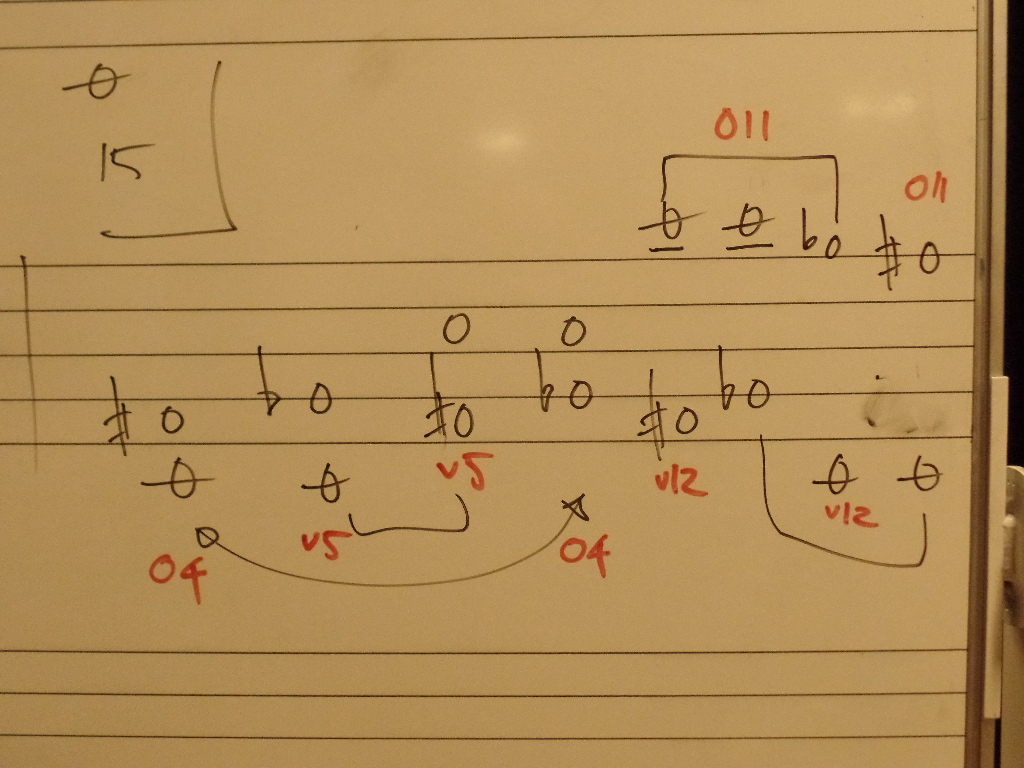 15
011
011
v5
v12
v5
v12
04
04